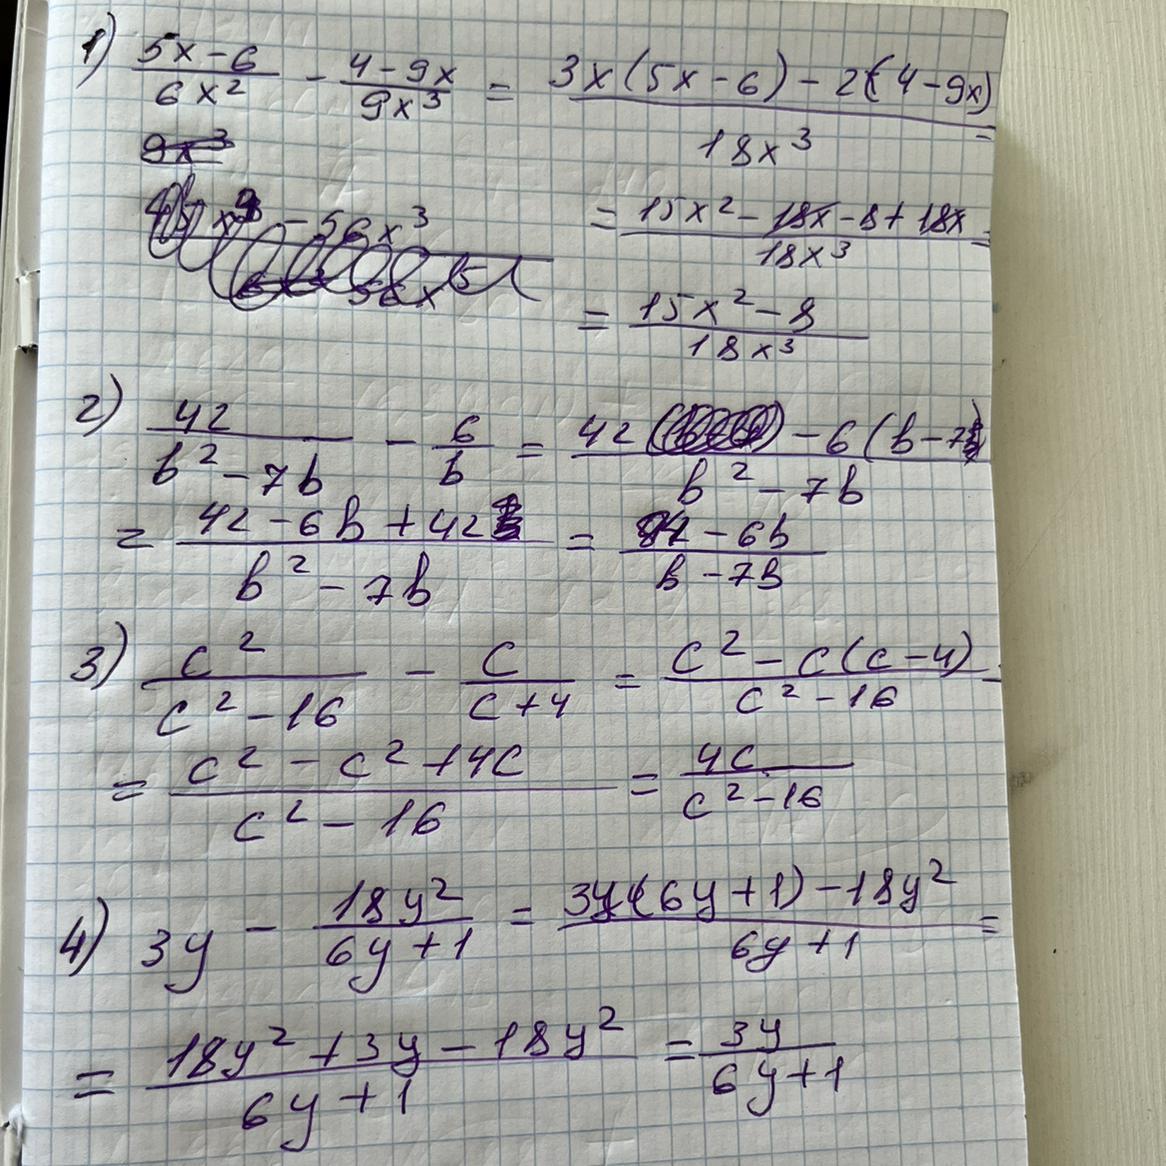 1) (5x-6)/(6x²) - (4-9x)/(9x³) = (3x(5x-6)-2(4-9x))/(18x³) =
9x³
= (15x²-18x-8+18x)/(18x³) =
= (15x²-8)/(18x³)
2) 42/(b²-7b) - 6/b = (42-6(b-7))/(b²-7b)
= (42-6b+42)/(b²-7b) = (84-6b)/(b-7b)
3) c²/(c²-16) - c/(c+4) = (c²-c(c-4))/(c²-16) =
= (c²-c²+4c)/(c²-16) = 4c/(c²-16)
4) 3y - 18y²/(6y+1) = (3y(6y+1)-18y²)/(6y+1) =
= (18y²+3y-18y²)/(6y+1) = 3y/(6y+1)